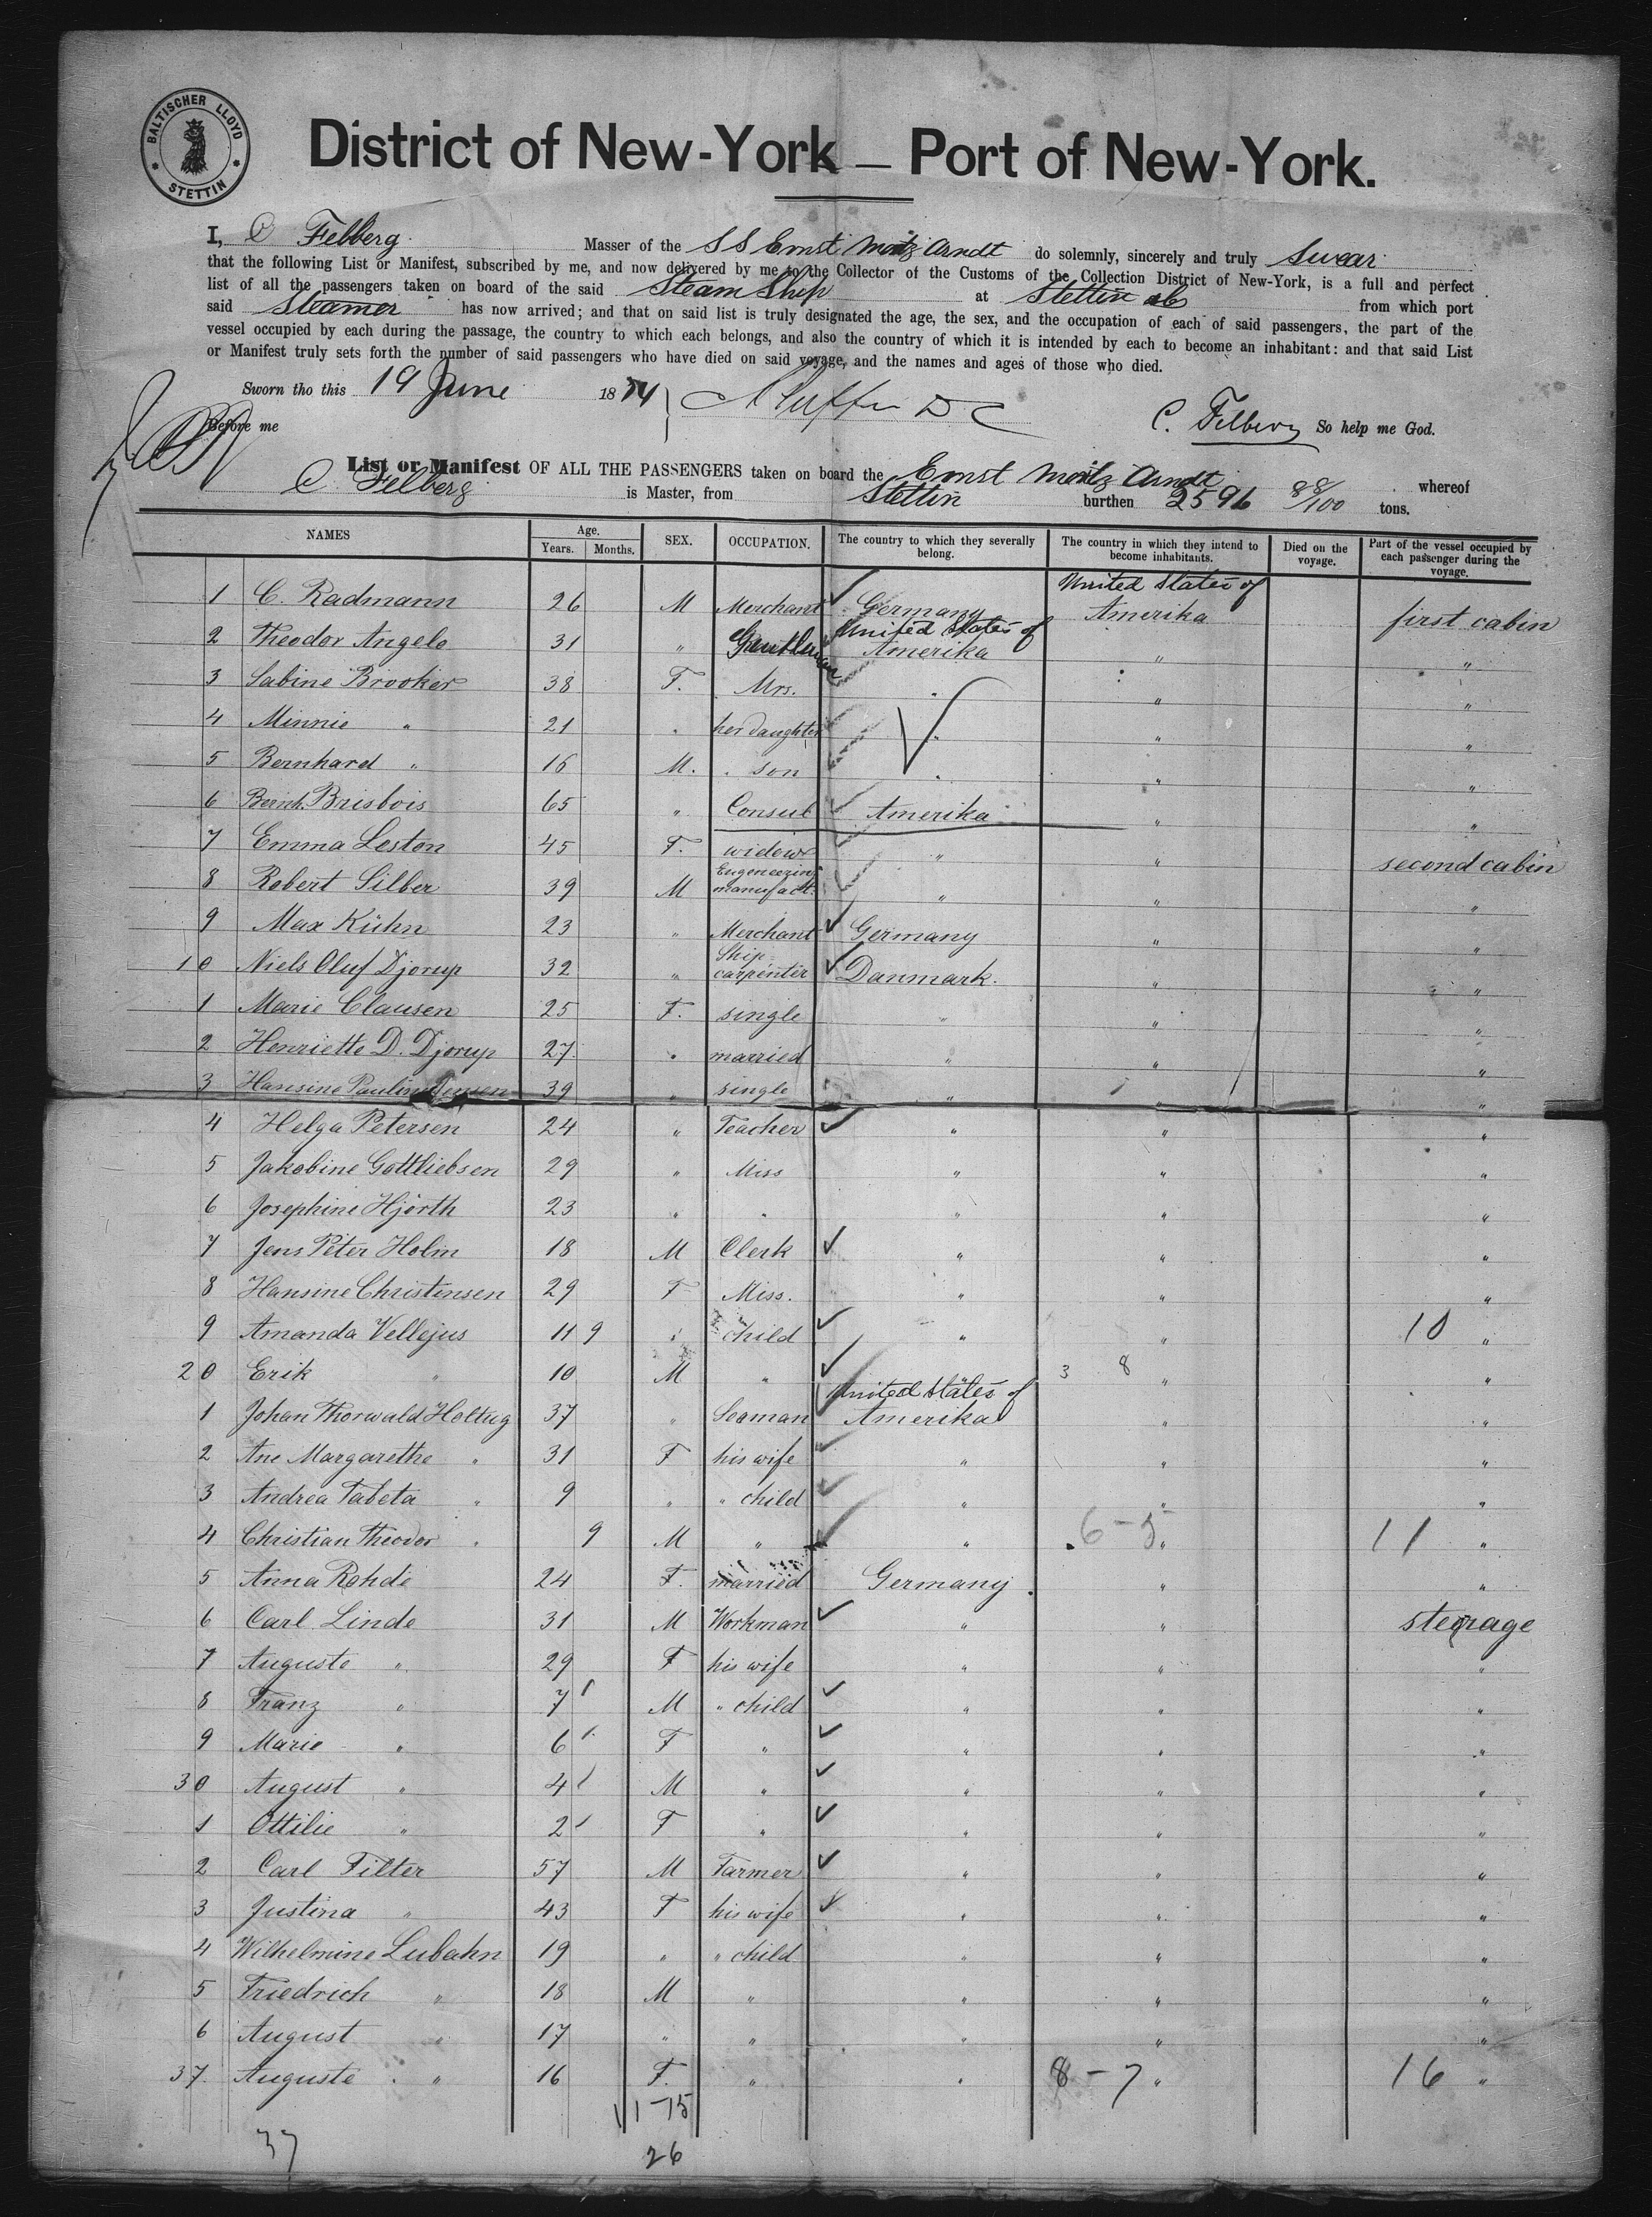 BALTISCHER LLOYD
STETTIN
District of New-York — Port of New-York.
I, C Felberg Masser of the SS Ernst Moritz Arndt do solemnly, sincerely and truly swear
that the following List or Manifest, subscribed by me, and now delivered by me to the Collector of the Customs of the Collection District of New-York, is a full and perfect
list of all the passengers taken on board of the said Steam Ship at Stettin from which port
said Steamer has now arrived; and that on said list is truly designated the age, the sex, and the occupation of each of said passengers, the part of the
vessel occupied by each during the passage, the country to which each belongs, and also the country of which it is intended by each to become an inhabitant: and that said List
or Manifest truly sets forth the number of said passengers who have died on said voyage, and the names and ages of those who died.
Sworn tho this 19 June 1874
Before me C. Felberg So help me God.
List or Manifest OF ALL THE PASSENGERS taken on board the Ernst Moritz Arndt whereof
C Felberg is Master, from Stettin burthen 2596 88/100 tons.
NAMES Age. Years. Months. SEX. OCCUPATION. The country to which they severally belong. The country in which they intend to become inhabitants. Died on the voyage. Part of the vessel occupied by each passenger during the voyage.
1 C. Radmann 26 M Merchant Germany United States of Amerika first cabin
2 Theodor Angelo 31 " Gentleman United States of Amerika " "
3 Sabine Brooker 38 F. Mrs. " " "
4 Minnie " 21 " her daughter " " "
5 Bernhard " 16 M. " son " " "
6 Bernh. Brisbois 65 " Consul Amerika " "
7 Emma Leston 45 F. widow " " second cabin
8 Robert Silber 39 M Engeneering manufact. " " "
9 Max Kühn 23 " Merchant Germany " "
10 Niels Oluf Djorup 32 " Ship carpenter Danmark. " "
1 Marie Clausen 25 F. single " " "
2 Henriette D. Djorup 27. " married " " "
3 Hansine Pauline Jensen 39 " single " " "
4 Helga Petersen 24 " Teacher " " "
5 Jakobine Gottliebsen 29 " Miss " " "
6 Josephine Hjörth 23 " " " " "
7 Jens Peter Holm 18 M Clerk " " "
8 Hansine Christensen 29 F Miss. " " "
9 Amanda Vellejus 11 9 " child " " 10 "
20 Erik " 10 M " " 3 8 " "
1 Johan Thorwald Holtug 37 " Seaman United States of Amerika " "
2 Ane Margarethe " 31 F his wife " " "
3 Andrea Tabeta " 9 " " child " " "
4 Christian Theodor " 9 M " " 6-5 " 11 "
5 Anna Rohde 24 F. married Germany. " "
6 Carl Linde 31 M Workman " " steerage
7 Auguste " 29 F his wife " " "
8 Franz " 7 M " child " " "
9 Marie " 6 F " " " "
30 August " 4 M " " " "
1 Ottilie " 2 F " " " "
2 Carl Filter 57 M Farmer " " "
3 Justina " 43 F his wife " " "
4 Wilhelmine Lubahn 19 " " child " " "
5 Friedrich " 18 M " " " "
6 August " 17 " " " " "
37. Auguste " 16 F. " " 8-7 " 16 "
11-15
37 26